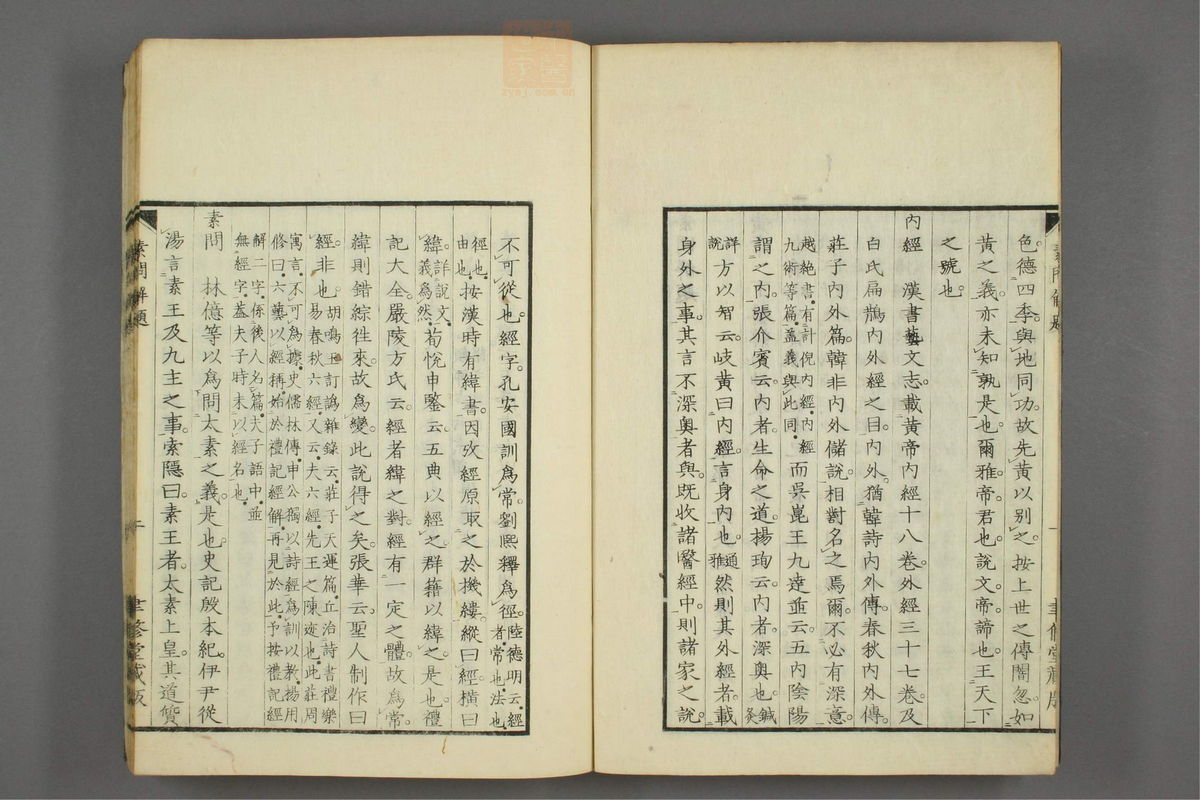 色德四季。與地同功。故先黃以別之。按上世之傳闇忽如
黃之義。亦未知孰是也。爾雅。帝。君也。說文。帝。諦也。王天下
之號也。
內經 漢書藝文志。載黃帝內經十八卷。外經三十七卷。及
白氏扁鵲內外經之目。內外。猶韓詩內外傳。春秋內外傳。
莊子內外篇。韓非內外儲說。相對名之焉爾。不必有深意
越絕書。有計倪內經。內經
九術等篇。蓋義與此同。
而吳崑王九達並云。五內陰陽
謂之內。張介賓云。內者。生命之道。楊珣云。內者。深奧也。鍼灸
詳說
方以智云。岐黃曰內經。言身內也。通雅
然則其外經者。載
身外之事。其言不深奧者與。既收諸醫經中。則諸家之說。
不可從也。經字。孔安國訓爲常。劉熙釋爲徑。陸德明云。經者。常也。法也
徑也。由也。
按漢時有緯書。因攷經原取之於機縷。縱曰經。橫曰
緯。詳說文。義爲然。
荀悅申鑒云。五典以經之。群籍以緯之。是也。禮
記大全。嚴陵方氏云。經者緯之對。經有一定之體。故爲常。
緯則錯綜往來。故爲變。此說得之矣。張華云。聖人制作曰
經。非也。
胡鳴玉訂譌雜錄云。莊子天運篇。丘治詩書禮樂
易春秋六經。又云。夫六經。先王之陳迹也。此莊周
寓言。不可爲據。史儒林傳。申公獨以詩經爲訓以敎。楊用
修曰。六藝以經稱。始於禮記經解。再見於此。予按禮記經
解二字。係後人名篇。夫子語中。並
無經字。蓋夫子時未以經名也。
素問 林億等以爲問太素之義。是也。史記殷本紀。伊尹從
湯言素王及九主之事。索隱曰。素王者。太素上皇。其道質
素問解題
聿修堂藏版
素問解題
一
聿修堂藏版